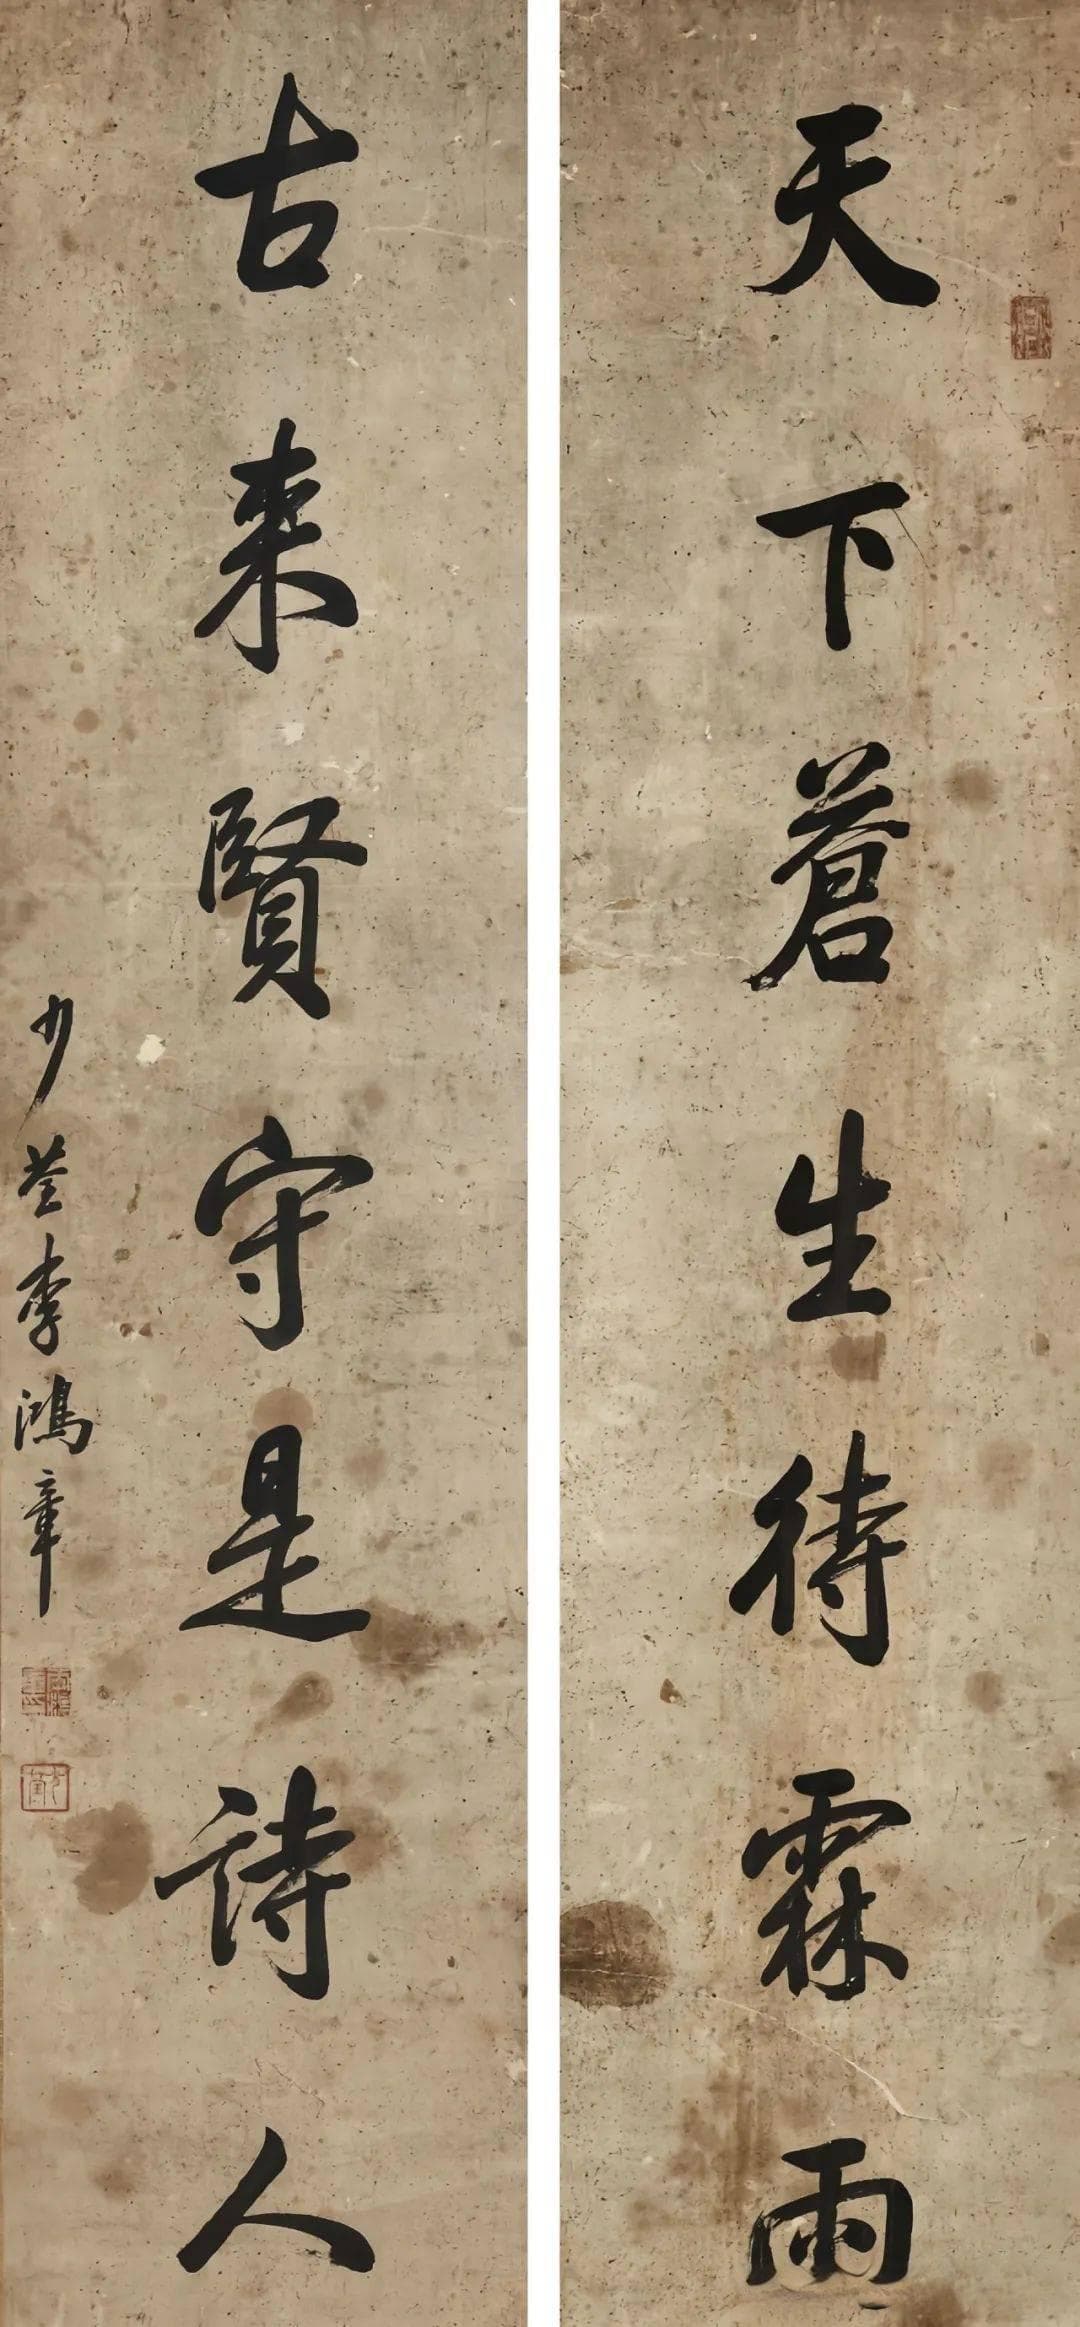 天下蒼生待霖雨
古來賢守是詩人
少荃李鴻章